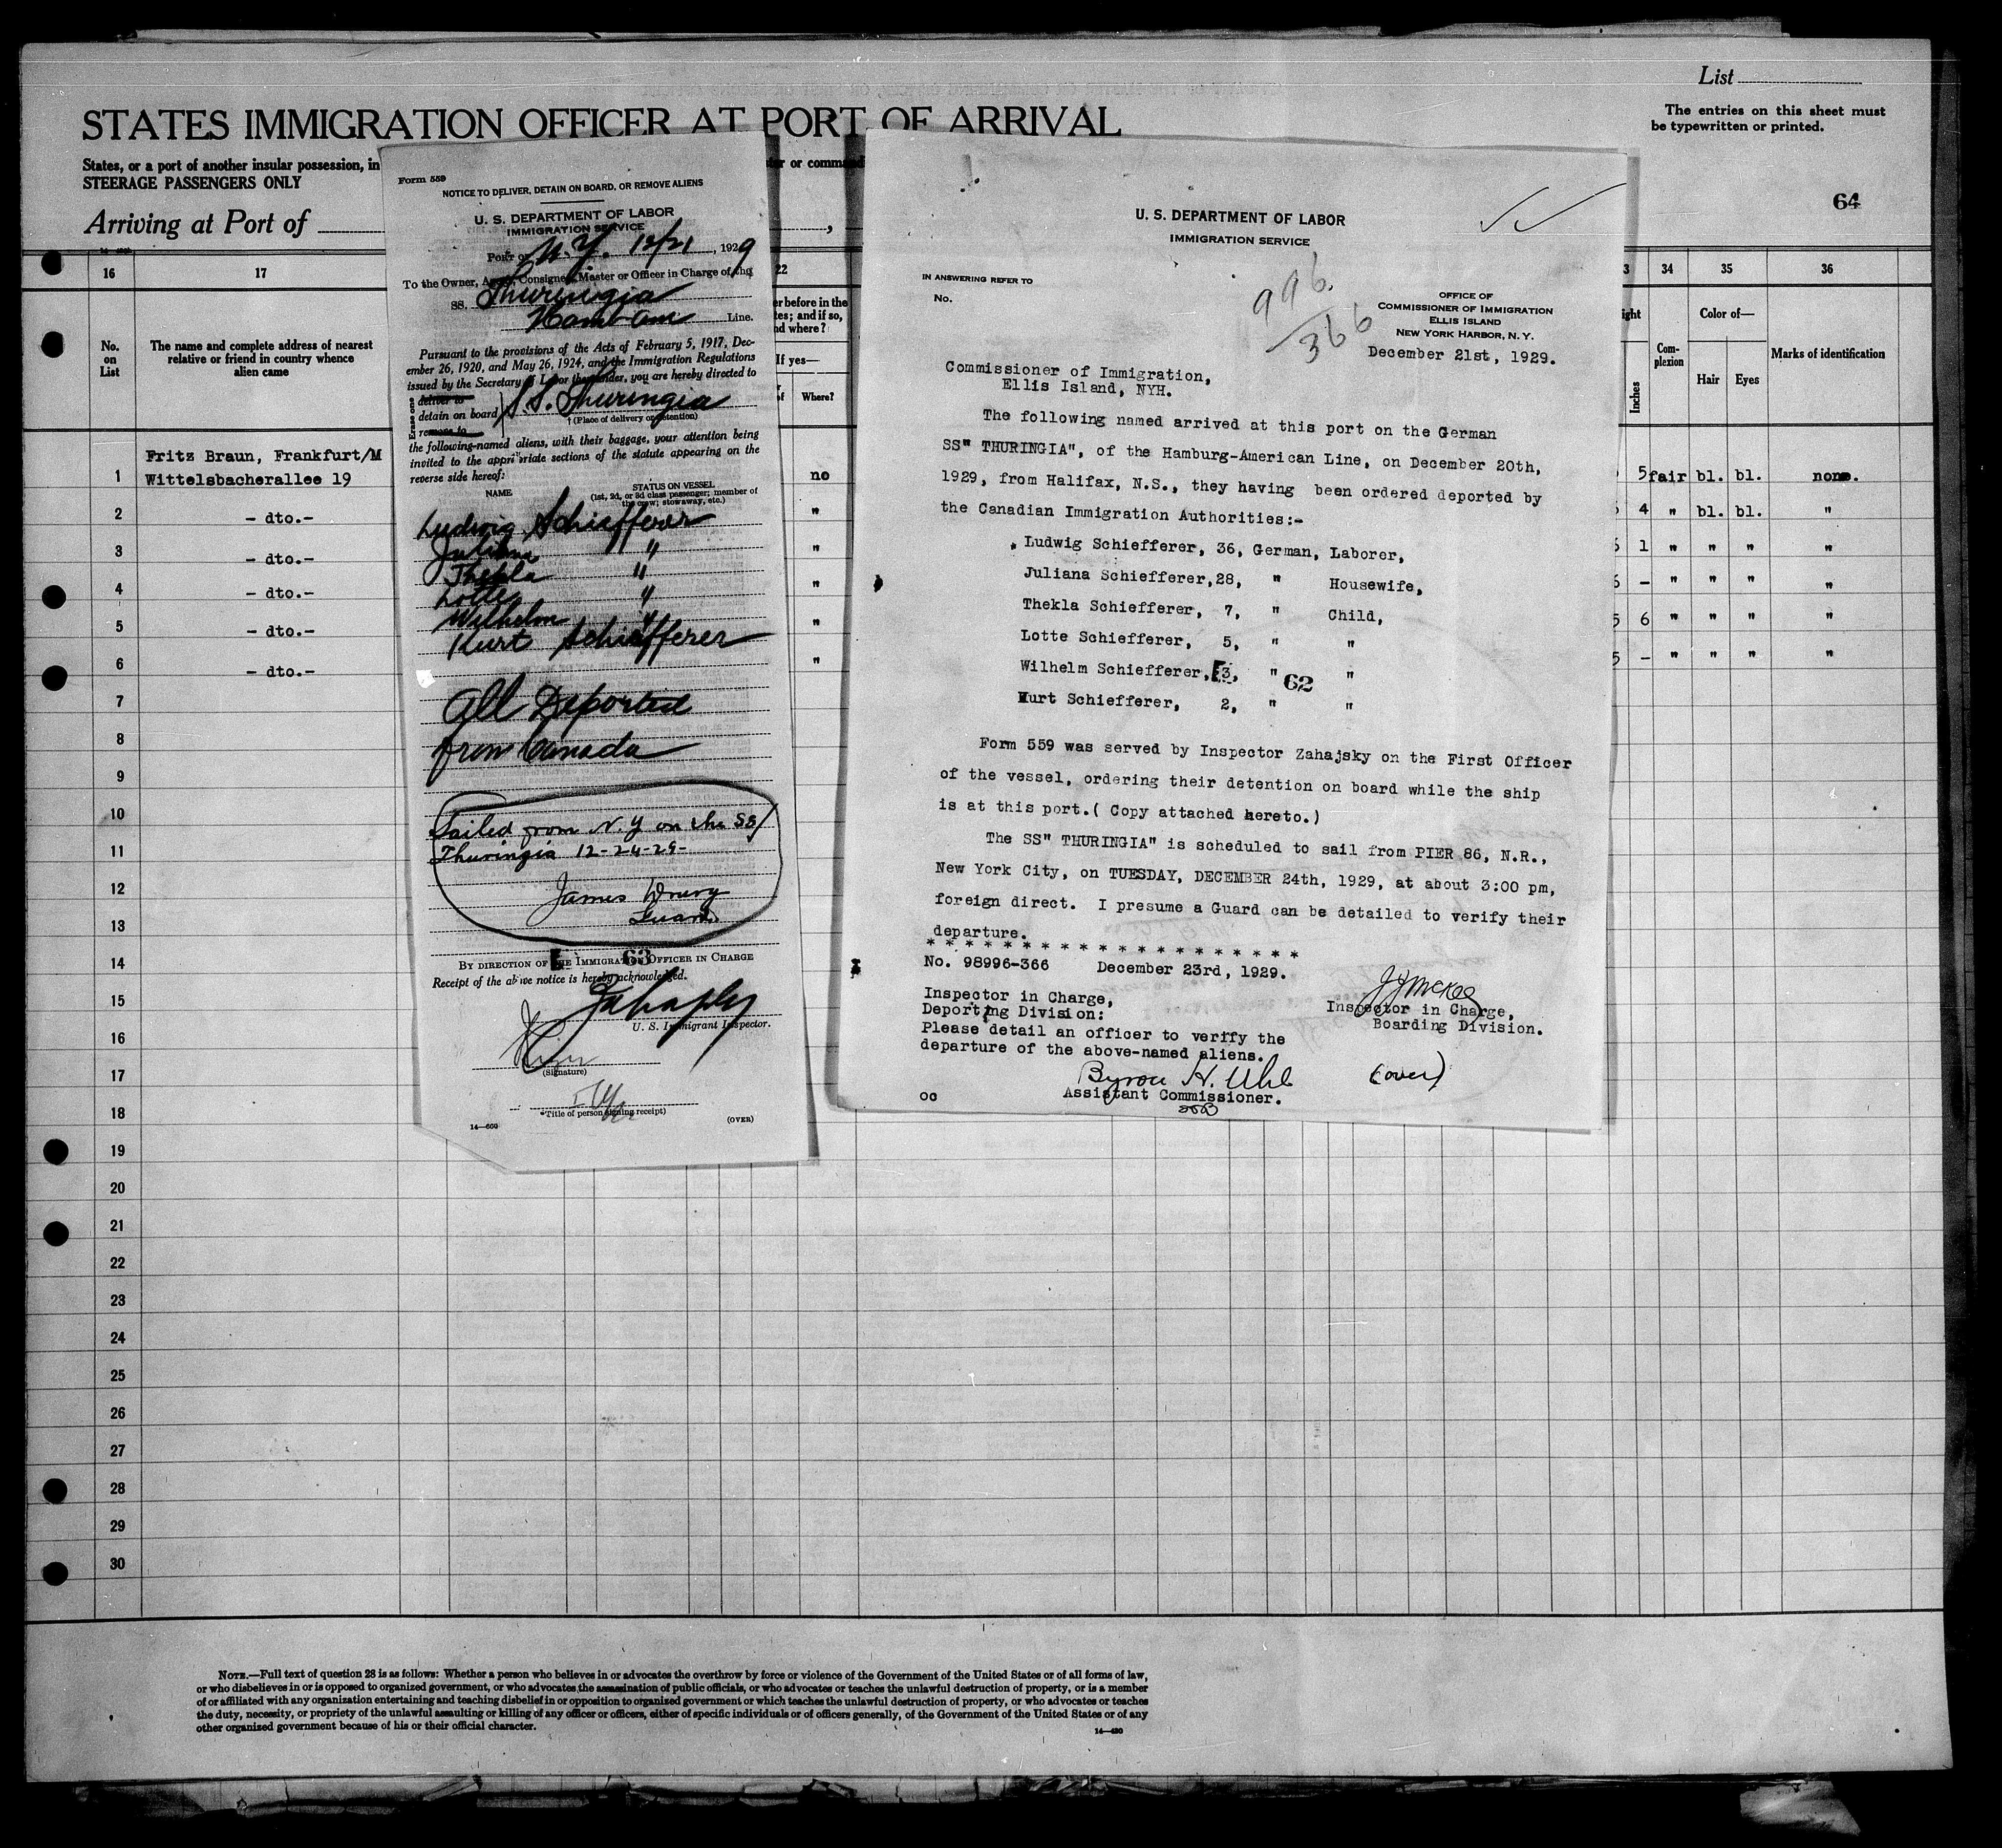 List
The entries on this sheet must
be typewritten or printed.
STATES IMMIGRATION OFFICER AT PORT OF ARRIVAL
States, or a port of another insular possession, in
or command
STEERAGE PASSENGERS ONLY
64
Arriving at Port of
16 17 22 34 35 36
No. on List
The name and complete address of nearest
relative or friend in country whence
alien came
before in the
and if so,
where?
If yes—
Where?
Inches
Com-
plexion
Color of—
Hair Eyes
Marks of identification
Fritz Braun, Frankfurt/M
1 Wittelsbacherallee 19 no 5 fair bl. bl. none.
2 - dto.- " 4 " bl. bl. "
3 - dto.- " 1 " " " "
4 - dto.- " - " " " "
5 - dto.- " 5 6 " " " "
6 - dto.- " 5 - " " " "
7
8
9
10
11
12
13
14
15
16
17
18
19
20
21
22
23
24
25
26
27
28
29
30
Form 559
NOTICE TO DELIVER, DETAIN ON BOARD, OR REMOVE ALIENS
U. S. DEPARTMENT OF LABOR
IMMIGRATION SERVICE
Port of N.Y. 12/21, 1929
To the Owner, Agent, Consignee, Master or Officer in Charge of the
SS. Thuringia
Hamb-Am Line.
Pursuant to the provisions of the Acts of February 5, 1917, Dec-
ember 26, 1920, and May 26, 1924, and the Immigration Regulations
issued by the Secretary of Labor thereunder, you are hereby directed to
Erase one
deliver to
detain on board S.S. Thuringia
remove to
† (Place of delivery or detention)
the following-named aliens, with their baggage, your attention being
invited to the appropriate sections of the statute appearing on the
reverse side hereof:
NAME STATUS ON VESSEL
(1st, 2d, or 3d class passenger; member of
the crew; stowaway, etc.)
Ludwig Schiefferer
Juliana "
Thekla "
Lotte "
Wilhelm "
Kurt Schiefferer
All Deported
from Canada
Sailed from N.Y on the SS
Thuringia 12-24-29-
James Drury
Guard
By direction of the Immigration Officer in Charge
63
Receipt of the above notice is hereby acknowledged.
U. S. Immigrant Inspector.
(Signature)
*Title of person signing receipt)
14—600 (OVER)
U. S. DEPARTMENT OF LABOR
IMMIGRATION SERVICE
IN ANSWERING REFER TO
No.
996
366
OFFICE OF
COMMISSIONER OF IMMIGRATION
ELLIS ISLAND
NEW YORK HARBOR, N. Y.
December 21st, 1929.
Commissioner of Immigration,
Ellis Island, NYH.
The following named arrived at this port on the German
SS" THURINGIA", of the Hamburg-American Line, on December 20th,
1929, from Halifax, N.S., they having been ordered deported by
the Canadian Immigration Authorities:-
Ludwig Schiefferer, 36, German, Laborer,
Juliana Schiefferer,28, " Housewife,
Thekla Schiefferer, 7, " Child,
Lotte Schiefferer, 5, " "
Wilhelm Schiefferer, 3, " "
62
Kurt Schiefferer, 2, " "
Form 559 was served by Inspector Zahajsky on the First Officer
of the vessel, ordering their detention on board while the ship
is at this port.( Copy attached hereto.)
The SS" THURINGIA" is scheduled to sail from PIER 86, N.R.,
New York City, on TUESDAY, DECEMBER 24th, 1929, at about 3:00 pm,
foreign direct. I presume a Guard can be detailed to verify their
departure.
* * * * * * * * * * * * * * * * * * * *
No. 98996-366 December 23rd, 1929.
Inspector in Charge,
Deporting Division:
Please detail an officer to verify the
departure of the above-named aliens.
J J McKee
Inspector in Charge,
Boarding Division.
Byron H. Uhl
(over)
oo Assistant Commissioner.
Note.—Full text of question 28 is as follows: Whether a person who believes in or advocates the overthrow by force or violence of the Government of the United States or of all forms of law,
or who disbelieves in or is opposed to organized government, or who advocates the assassination of public officials, or who advocates or teaches the unlawful destruction of property, or is a member
of or affiliated with any organization entertaining and teaching disbelief in or opposition to organized government or which teaches the unlawful destruction of property, or who advocates or teaches
the duty, necessity, or propriety of the unlawful assaulting or killing of any officer or officers, either of specific individuals or of officers generally, of the Government of the United States or of any
other organized government because of his or their official character.
14—480